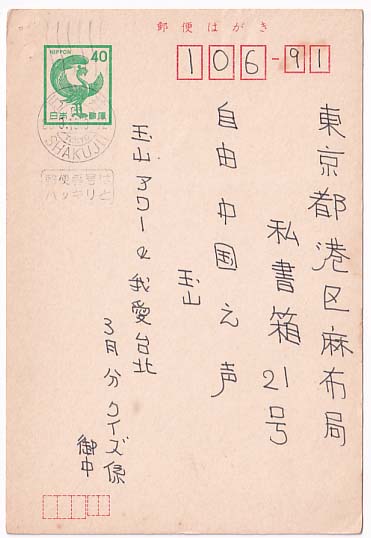 郵便はがき
106-91
NIPPON
40
日本郵便
SHAKUJII
郵便番号は
ハッキリと
東京都港区麻布局
私書箱21号
自由中国之声
玉山
玉山アワー&我愛台北
3月分クイズ係
御中